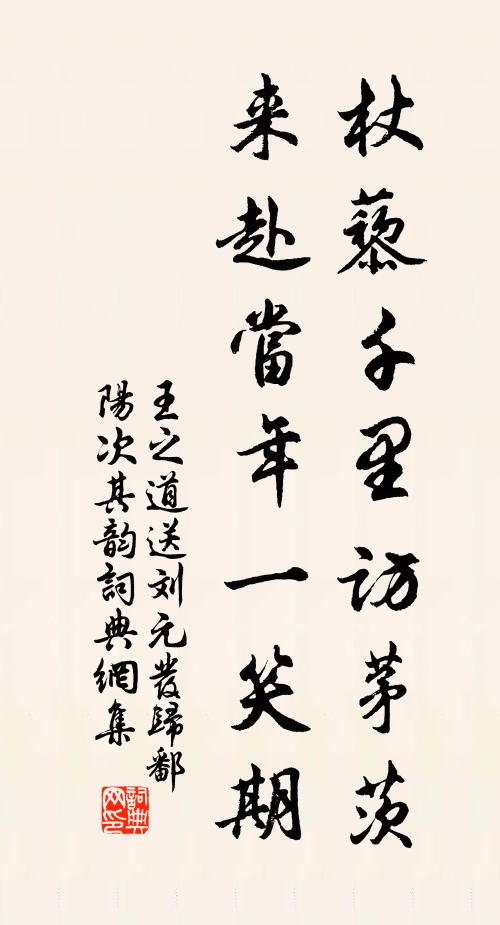 杖藜千里访茅茨
来赴當年一笑期
王之道送刘元發歸鄱
陽次其韵詞典網集
詞典网印